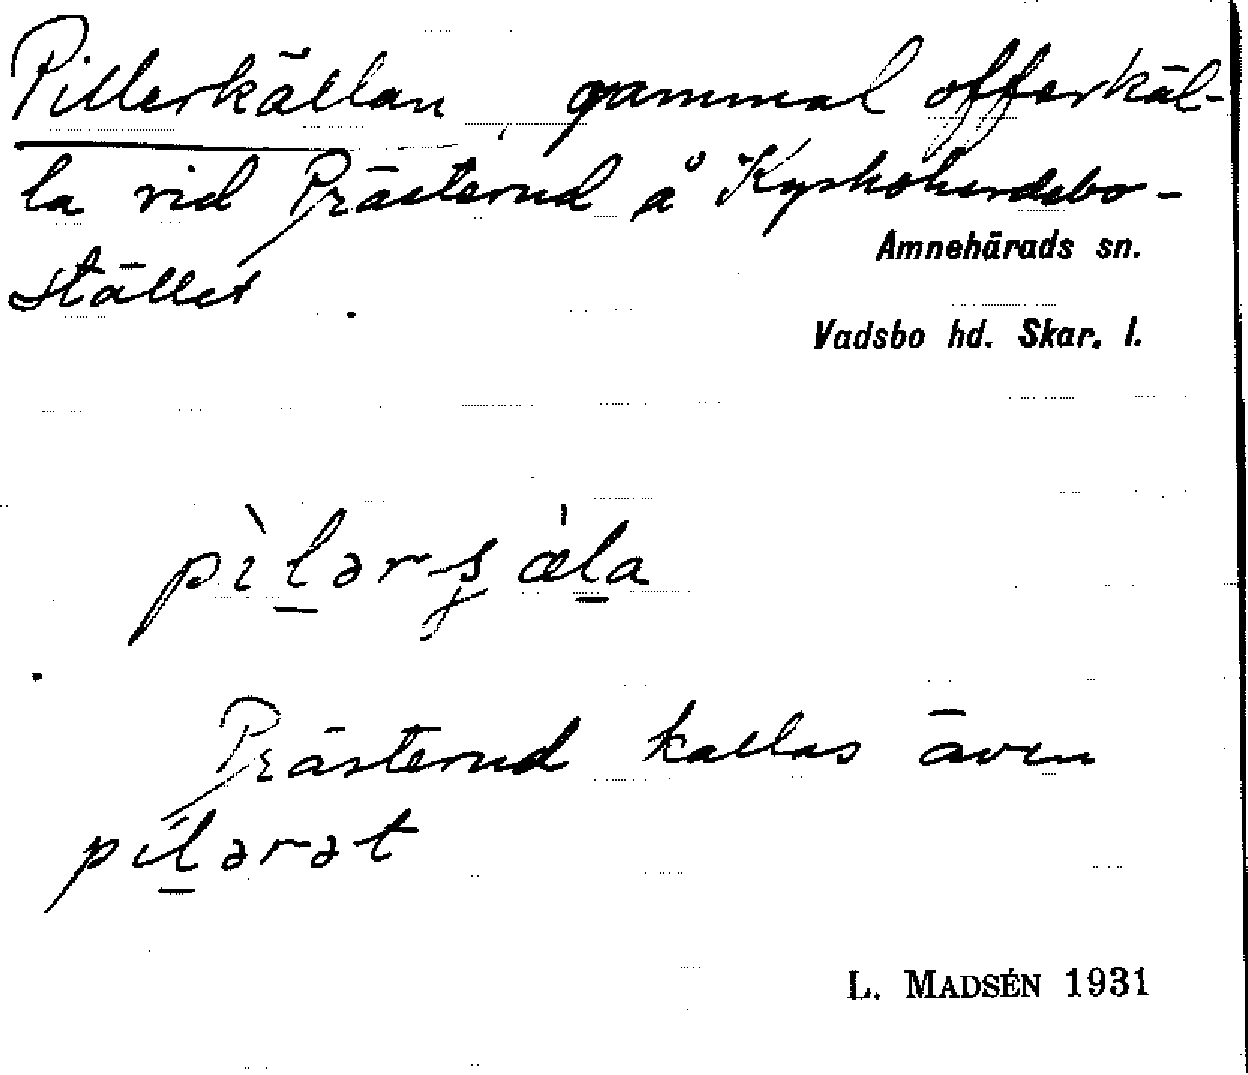 Pillerkällan, gammal offerkäl-
la vid Prästerud å Kyrkoherdebo-
stället
Amnehärads sn.
Vadsbo hd. Skar. l.
pìḻərʂæ̀ḻa
Prästerud kallas även
píḻərət
L. MADSÉN 1931